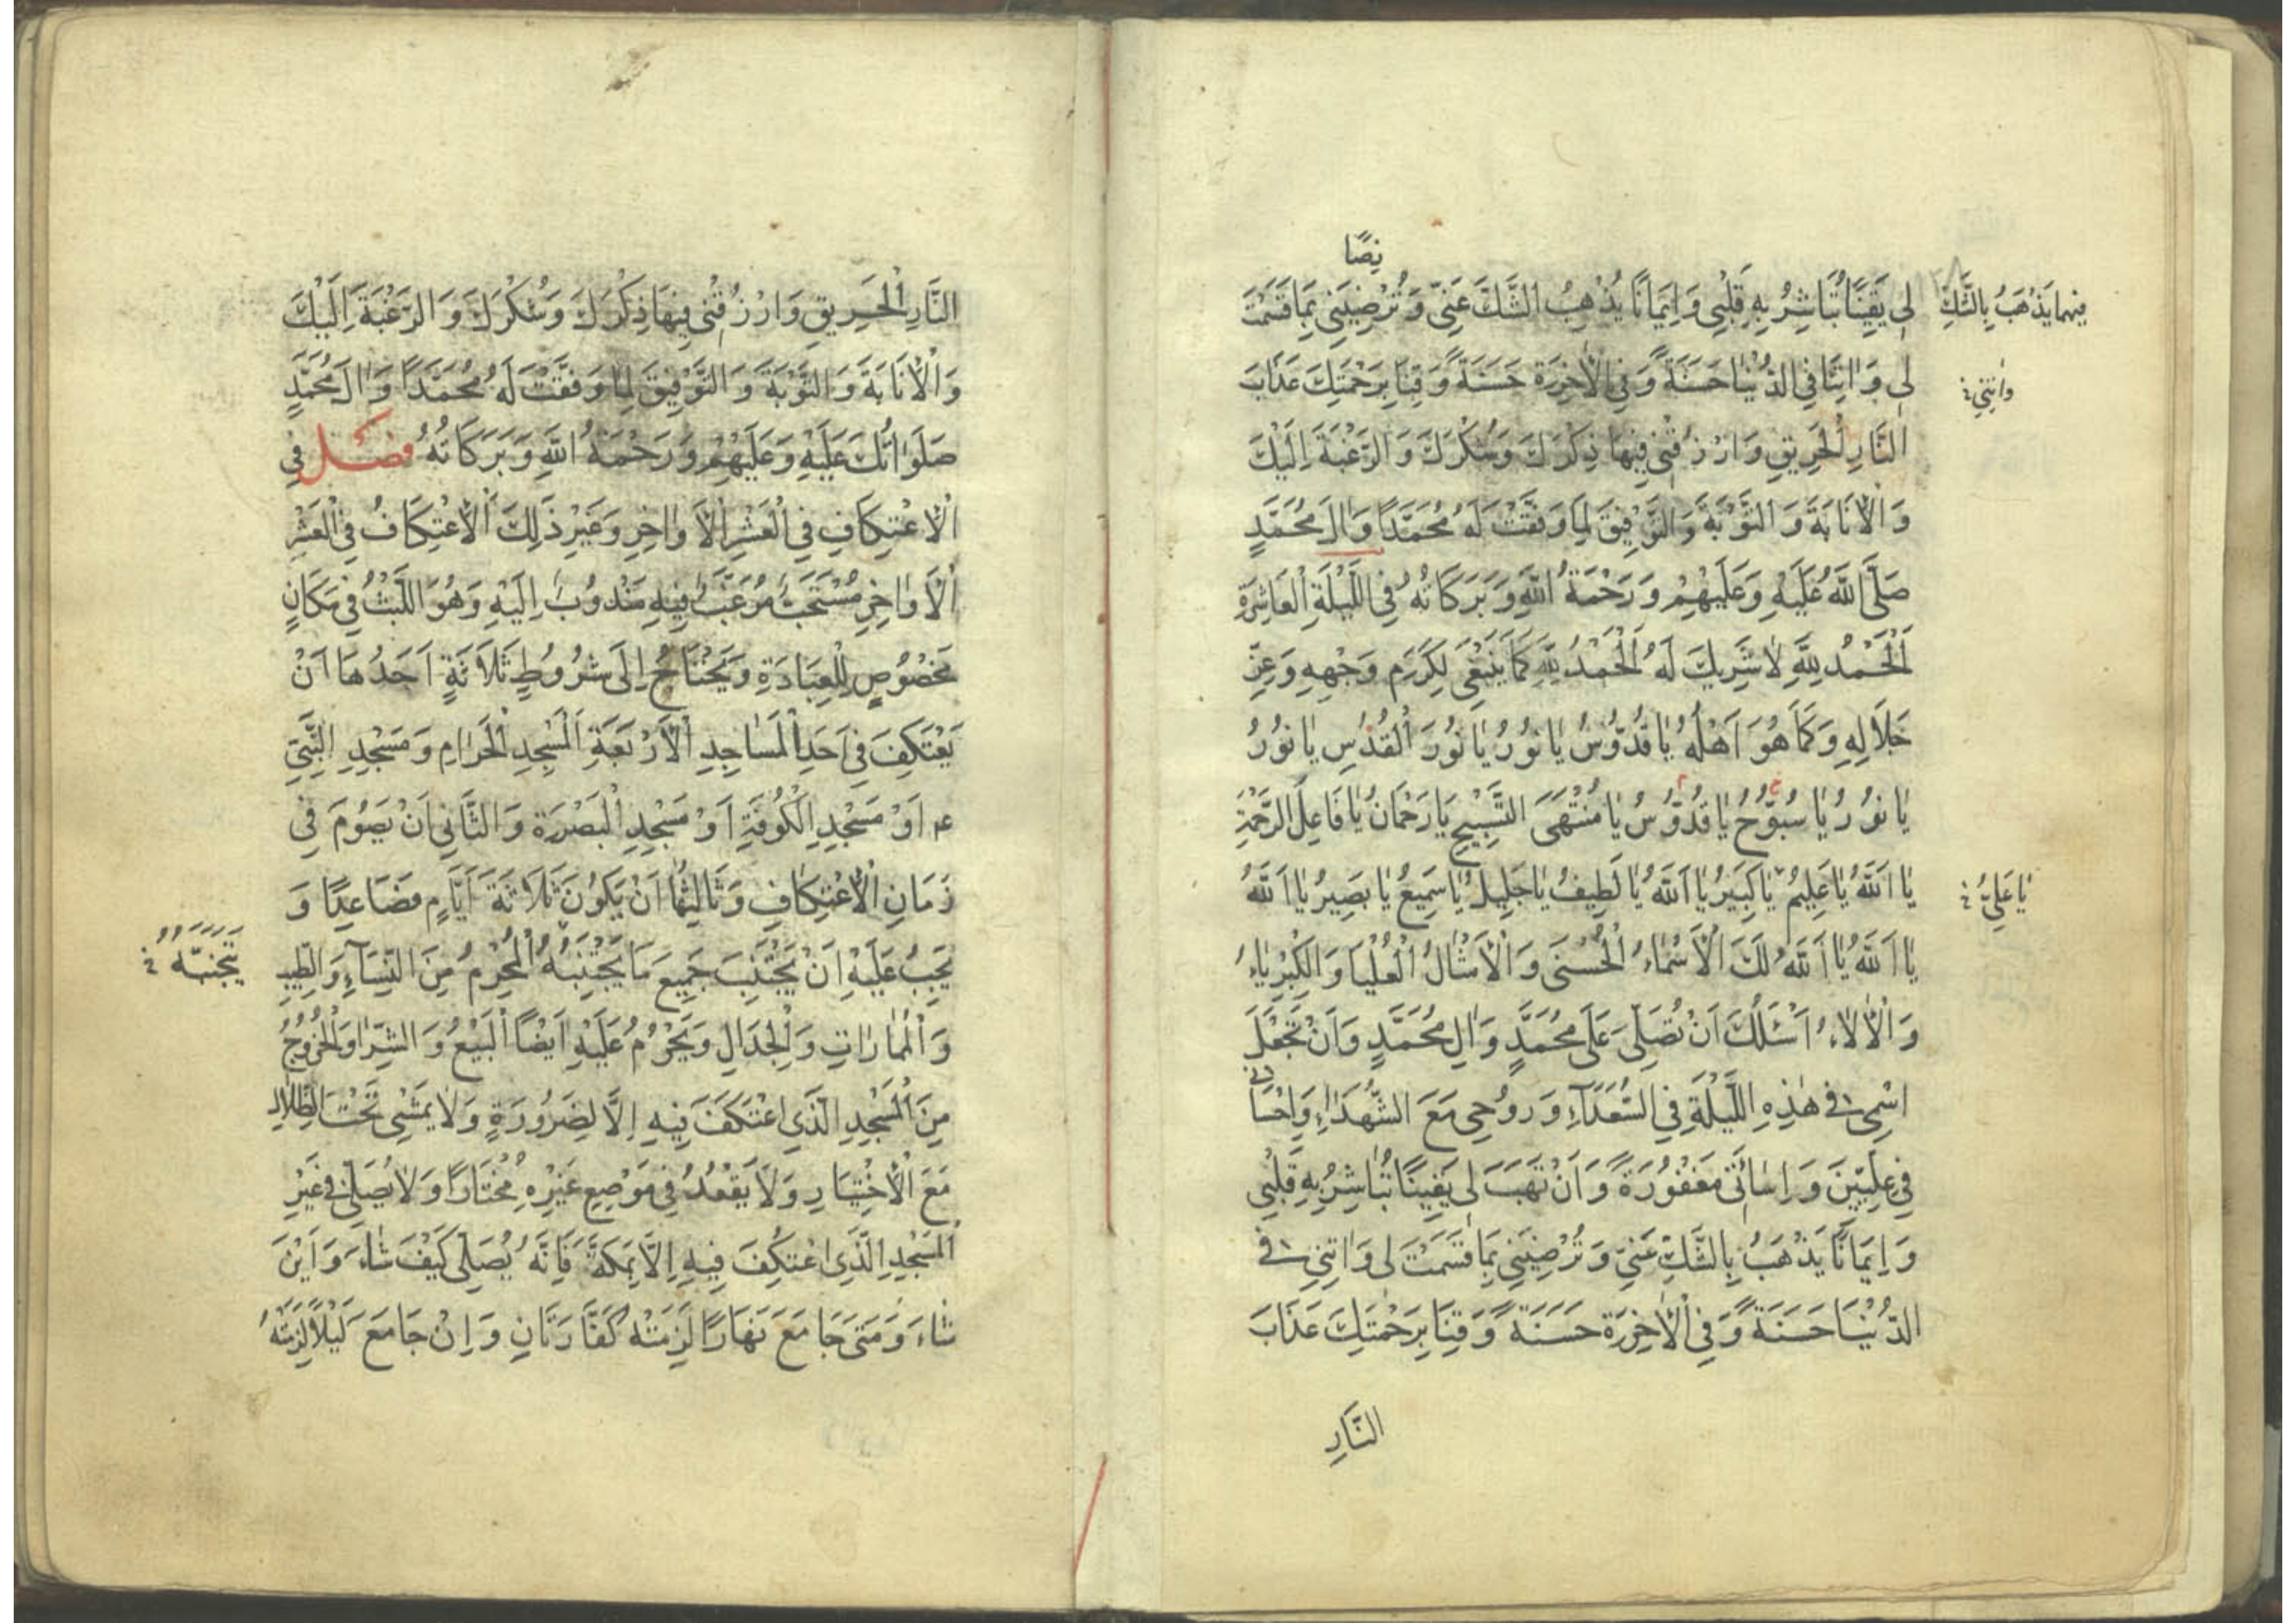 نصًا
لِی یَقِینًا تُبَاشِرُ بِهِ قَلْبِی وَاِیمَانًا یُذْهِبُ الشَّكَّ عَنِّی وَتُرْضِیَنِی بِمَا قَسَمْتَ
فیهما یَذْهَبُ بِالشَّكِّ
لِی وَاٰتِنَا فِی الدُّنْیٰا حَسَنَةً وَفِی الْاٰخِرَةِ حَسَنَةً وَقِنَا بِرَحْمَتِكَ عَذَابَ
وَاٰتِنِی
النَّارِ الْحَرِیقِ وَارْزُقْنِی فِیهَا ذِكْرَكَ وَشُكْرَكَ وَالرَّغْبَةَ اِلَیْكَ
وَالْاَنَابَةَ وَالتَّوْبَةَ وَالتَّوْفِیقَ لِمَا وَفَّقْتَ لَهُ مُحَمَّدًا وَاٰلَ مُحَمَّدٍ
صَلَّی اللّٰهُ عَلَیْهِ وَعَلَیْهِمْ وَرَحْمَةُ اللّٰهِ وَبَرَكَاتُهُ فِی اللَّیْلَةِ الْعَاشِرَةِ
اَلْحَمْدُ لِلّٰهِ لٰا شَرِیكَ لَهُ الْحَمْدُ لِلّٰهِ كَمَا یَنْبَغِی لِكَرَمِ وَجْهِهِ وَعِزِّ
جَلَالِهِ وَكَمَا هُوَ اَهْلُهُ یٰا قُدُّوسُ یٰا نُورُ یٰا نُورَ الْقُدُسِ یٰا نُورُ
یٰا نُورُ یٰا سُبُّوحُ یٰا قُدُّوسُ یٰا مُنْتَهَی التَّسْبِیحِ یَا رَحْمَانُ یٰا فَاعِلَ الرَّحْمَةِ
یٰا اَللّٰهُ یٰا عَلِیمُ یٰا كَبِیرُ یٰا اَللّٰهُ یٰا لَطِیفُ یٰا جَلِیلُ یٰا سَمِیعُ یٰا بَصِیرُ یٰا اَللّٰهُ
یٰا عَلِیُّ
یٰا اَللّٰهُ یٰا اَللّٰهُ لَكَ الْاَسْمٰاءُ الْحُسْنَی وَالْاَمْثٰالُ الْعُلْیَا وَالْكِبْرِیٰاءُ
وَالْاٰلَاءُ اَسْئَلُكَ اَنْ تُصَلِّیَ عَلَی مُحَمَّدٍ وَاٰلِ مُحَمَّدٍ وَاَنْ تَجْعَلَ
اسْمِی فِی هٰذِهِ اللَّیْلَةِ فِی السُّعَدَآءِ وَرُوحِی مَعَ الشُّهَدَاءِ وَاِحْسَانِی
فِی عِلِّیِّینَ وَاِسَائَتِی مَغْفُورَةً وَاَنْ تَهَبَ لِی یَقِینًا تُبَاشِرُ بِهِ قَلْبِی
وَاِیمَانًا یَذْهَبُ بِالشَّكِّ عَنِّی وَتُرْضِیَنِی بِمَا قَسَمْتَ لِی وَاٰتِنِی فِی
الدُّنْیَا حَسَنَةً وَفِی الْاٰخِرَةِ حَسَنَةً وَقِنَا بِرَحْمَتِكَ عَذَابَ
النَّارِ
النَّارِ الْحَرِیقِ وَارْزُقْنِی فِیهَا ذِكْرَكَ وَشُكْرَكَ وَالرَّغْبَةَ اِلَیْكَ
وَالْاَنَابَةَ وَالتَّوْبَةَ وَالتَّوْفِیقَ لِمٰا وَفَّقْتَ لَهُ مُحَمَّدًا وَاٰلَ مُحَمَّدٍ
صَلَوَاتُكَ عَلَیْهِ وَعَلَیْهِمْ وَرَحْمَةُ اللّٰهِ وَبَرَكَاتُهُ فصل فِی
الْاِعْتِكَافِ فِی الْعَشْرِ الْاَوٰاخِرِ وَغَیْرِ ذٰلِكَ اَلْاِعْتِكَافُ فِی الْعَشْرِ
الْاَوٰاخِرِ مُسْتَحَبٌّ مُرَغَّبٌ فِیهِ مَنْدُوبٌ اِلَیْهِ وَهُوَ اللَّبْثُ فِی مَكَانٍ
مَخْصُوصٍ لِلْعِبَادَةِ وَیَحْتَاجُ اِلَی شُرُوطٍ ثَلَاثَةٍ اَحَدُهَا اَنْ
یَعْتَكِفَ فِی اَحَدِ الْمَسَاجِدِ الْاَرْبَعَةِ الْمَسْجِدِ الْحَرَامِ وَمَسْجِدِ النَّبِیِّ
ع اَوْ مَسْجِدِ الْكُوفَةِ اَوْ مَسْجِدِ الْبَصْرَةِ وَالثَّانِی اَنْ یَصُومَ فِی
زَمَانِ الْاِعْتِكَافِ وَثَالِثُهَا اَنْ یَكُونَ ثَلَاثَةَ اَیَّامٍ فَصَاعِدًا وَ
یَجِبُ عَلَیْهِ اَنْ یَجْتَنِبَ جَمِیعَ مَا یَجْتَنِبُهُ الْمُحْرِمُ مِنَ النِّسَآءِ وَالطِّیبِ
یَتَجَنَّبُهُ
وَالْمُمٰارٰاتِ وَالْجِدَالِ وَیَحْرُمُ عَلَیْهِ اَیْضًا الْبَیْعُ وَالشِّرَا وَالْخُرُوجُ
مِنَ الْمَسْجِدِ الَّذِی اعْتَكَفَ فِیهِ اِلَّا لِضَرُورَةٍ وَلَا یَمْشِی تَحْتَ الظِّلَالِ
مَعَ الْاِخْتِیَارِ وَلَا یَقْعُدُ فِی مَوْضِعٍ غَیْرِهِ مُخْتَارًا وَلَا یُصَلِّی فِی غَیْرِ
الْمَسْجِدِ الَّذِی اعْتَكَفَ فِیهِ اِلَّا بِمَكَّةَ فَاِنَّهُ یُصَلِّی كَیْفَ شَاءَ وَاَیْنَ
شَاءَ وَمَتَی جَامَعَ نَهَارًا لَزِمَتْهُ كَفَّارَتَانِ وَاِنْ جَامَعَ لَیْلًا لَزِمَتْهُ